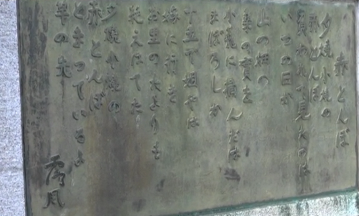 赤とんぼ
夕焼小焼の
赤とんぼ
負われて見たのは
いつの日か
山の畑の
桑の実を
小籠に摘んだは
まぼろしか
十五で姐やは
嫁に行き
お里のたよりも
絶えはてた
夕焼小焼の
赤とんぼ
とまっているよ
竿の先
露風